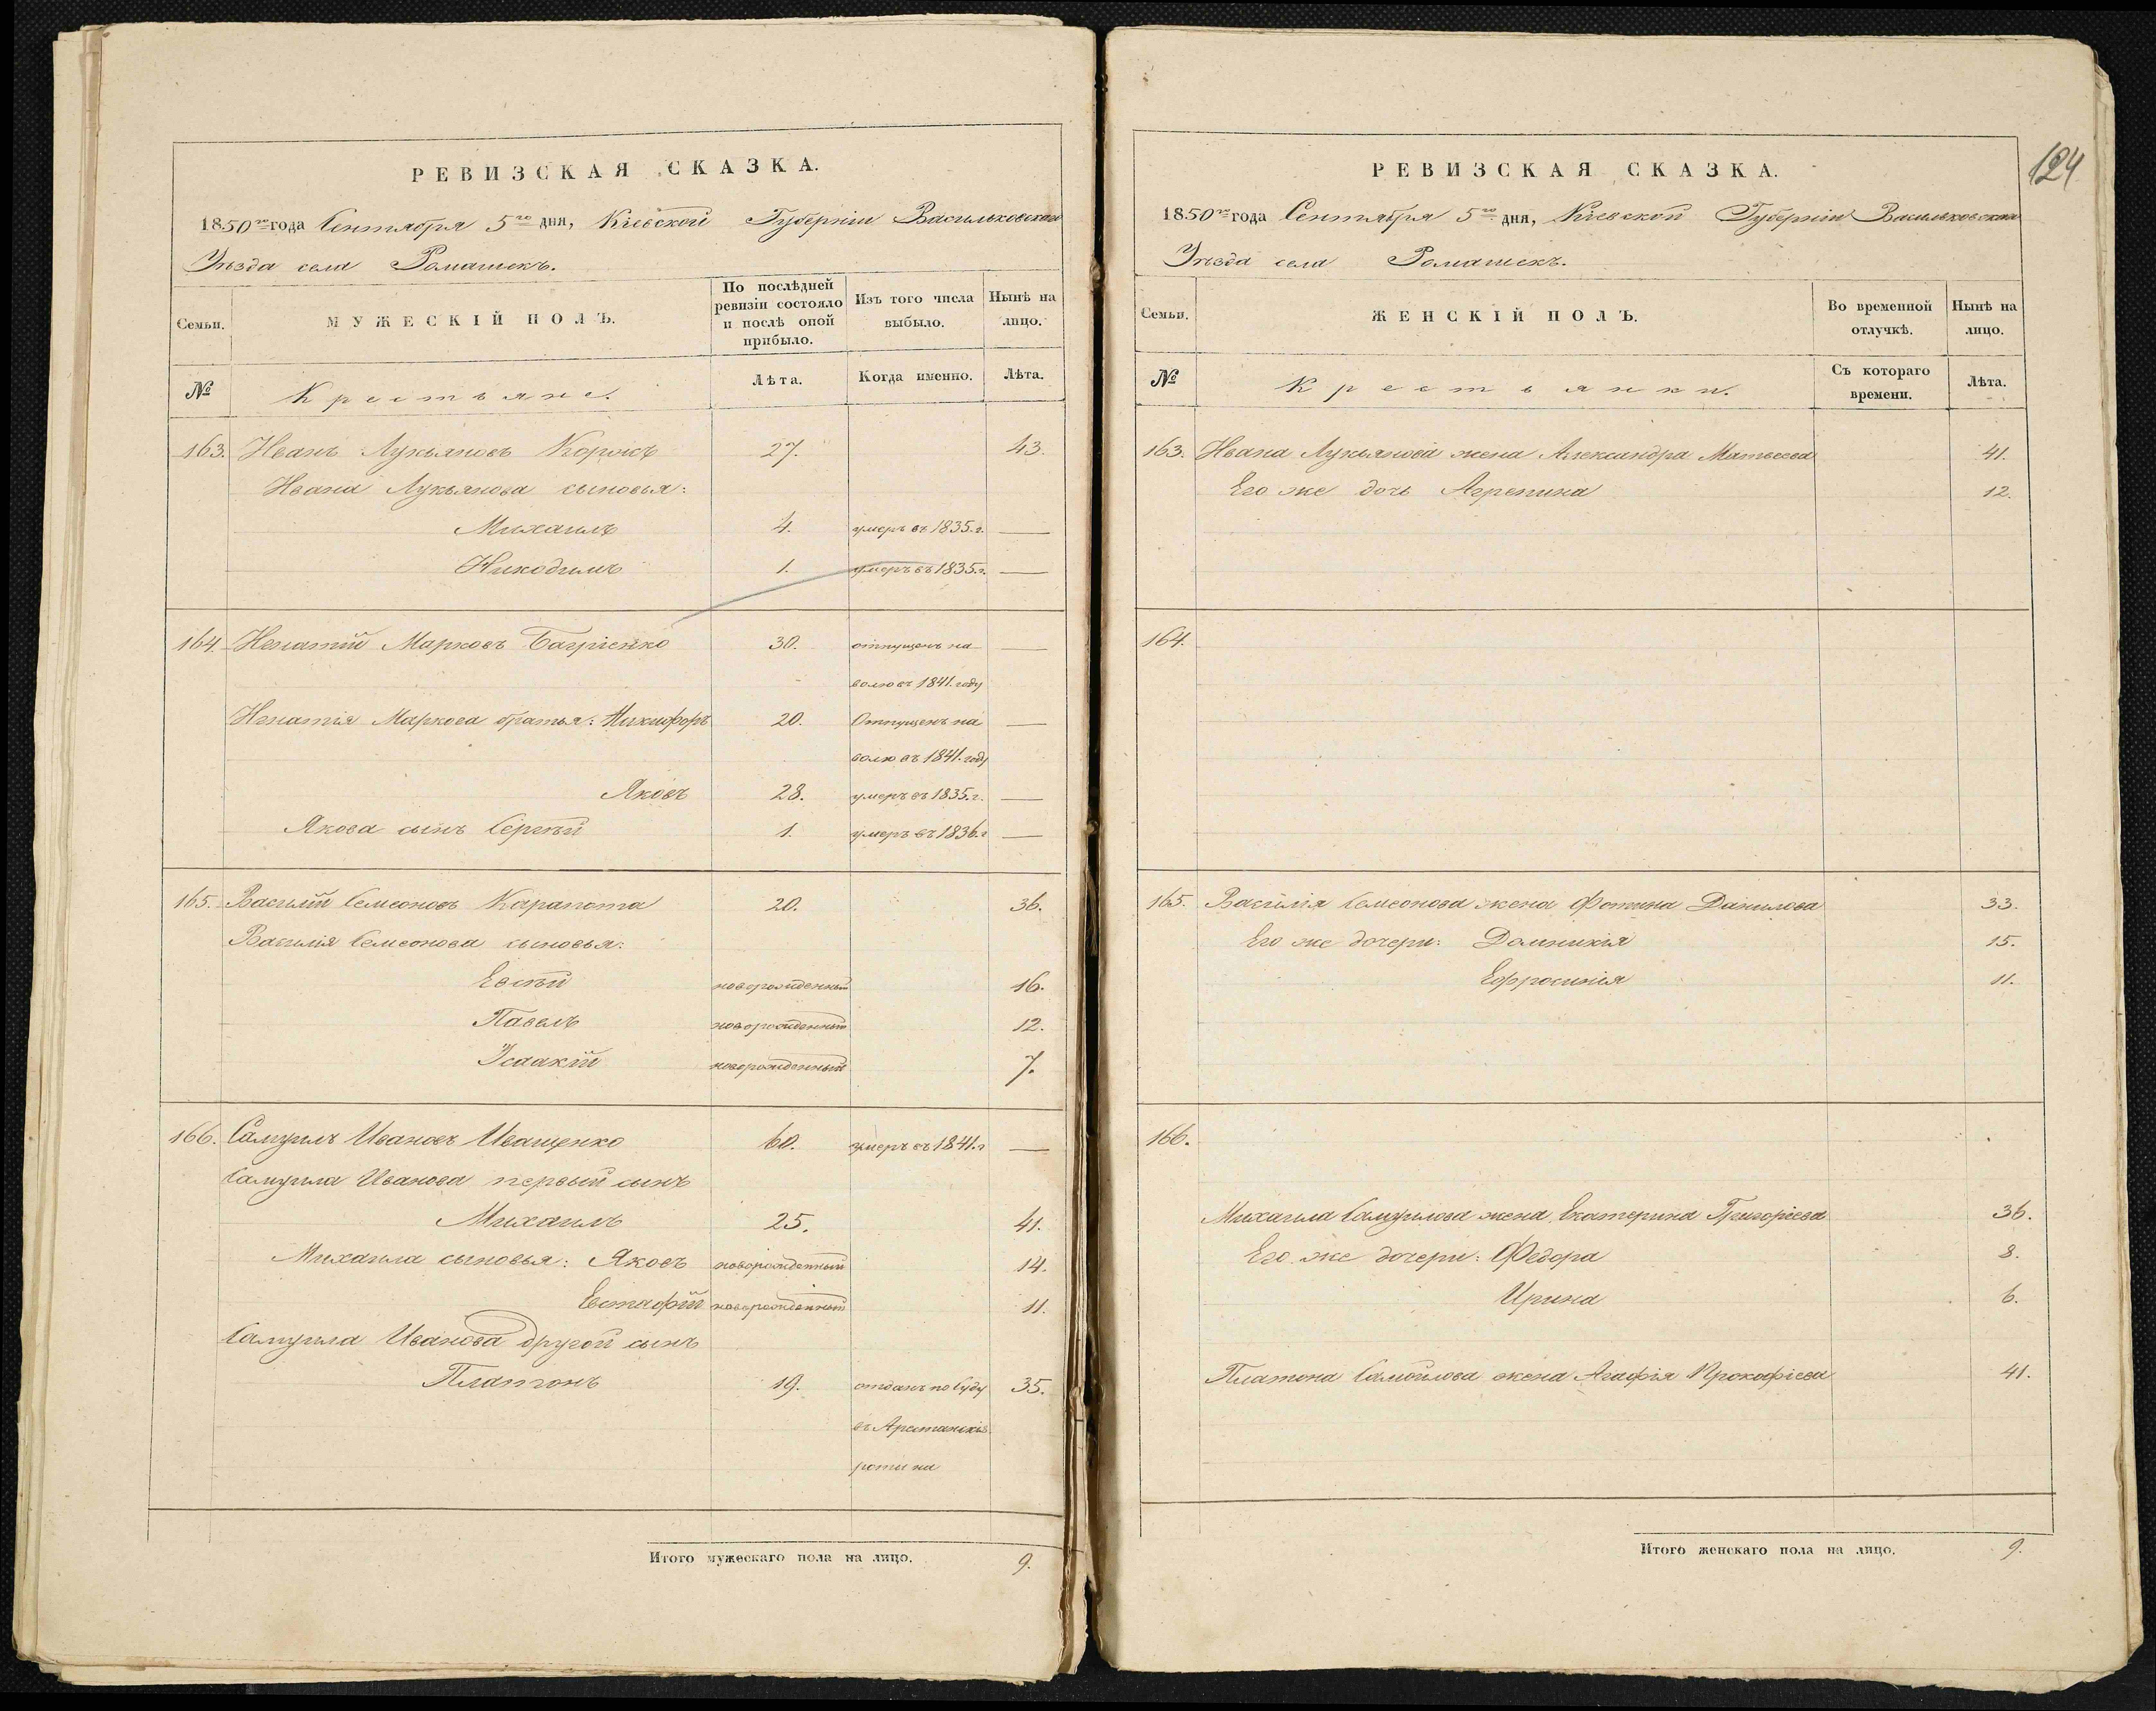 РЕВИЗСКАЯ СКАЗКА.
1850го года Сентября 5го дня, Кіевской Губерніи Васильковскаго
Уѣзда села Ромашекъ.
Семьи.
МУЖЕСКІЙ ПОЛЪ.
По послѣдней ревизіи состояло и послѣ оной прибыло.
Изъ того числа выбыло.
Нынѣ на лицо.
№
Крестьяне.
Лѣта.
Когда именно.
Лѣта.
163. Иванъ Лукьяновъ 27. 43.
Ивана Лукьянова сыновья:
Михаилъ 4. умеръ въ 1835. г. —
Никодимъ 1. умеръ въ 1835. г. —
164. Игнатій Марковъ Багріенко 30. отпущенъ на —
волю въ 1841. году
Игнатія Маркова братья: Никифоръ 20. Отпущенъ на —
волю въ 1841. году
Яковъ 28. умеръ въ 1835. г. —
Якова сынъ Сергѣй 1. умеръ въ 1836. г —
165. Василій Семеоновъ Карапота 20. 36.
Василія Семеонова сыновья:
Евсѣй новорожденный 16.
Павелъ новорожденный 12.
Ісаакій новорожденный 7.
166. Самуилъ Ивановъ Иващенко 60. умеръ въ 1841. г —
Самуила Иванова первый сынъ
Михаилъ 25. 41.
Михаила сыновья: Яковъ новорожденный 14.
Евстафій новорожденный 11.
Самуила Иванова другой сынъ
Платонъ 19. отданъ по Суду 35.
въ Арестанскія
роты на
Итого мужескаго пола на лицо. 9.
124
РЕВИЗСКАЯ СКАЗКА.
1850го года Сентября 5го дня, Кіевской Губерніи Васильковскаго
Уѣзда села Ромашекъ.
Семьи.
ЖЕНСКІЙ ПОЛЪ.
Во временной отлучкѣ.
Нынѣ на лицо.
№
Крестьянки.
Съ котораго времени.
Лѣта.
163. Ивана Лукьянова жена Александра Матвеева 41.
Его же дочь Агрепина 12.
164.
165. Василія Семеонова жена Фотина Данилова 33.
Его же дочери: Домникія 15.
Ефросинія 11.
166.
Михаила Самуилова жена Екатерина Григоріева 36.
Его же дочери: Федора 8.
Ирина 6.
Платона Самойлова жена Агафія Прокофіева 41.
Итого женскаго пола на лицо. 9.